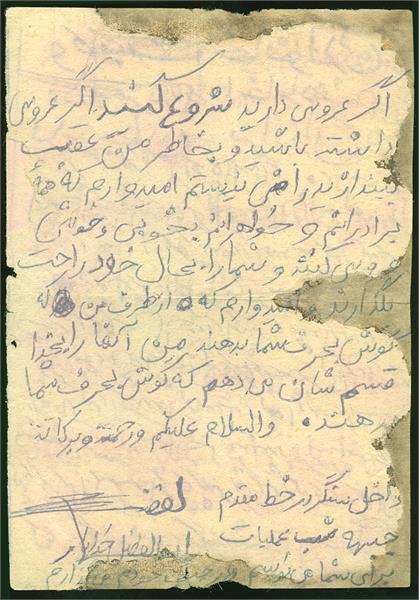 اگر عروسی دارید شروع کنید اگر عروسی
داشته باشید و بخاطر من عقب
بیندازید راضی نیستم امیدوارم که همهٔ
برادرانم و خواهرانم بخوبی و خوشی
عروسی کنند و شما را بحال خود راحت
بگذارند و امیدوارم که از طرف من که
گوش بحرف شما بدهند من آنها را بخدا
قسم شان می دهم که گوش بحرف شما
بدهند. والسلام علیکم و رحمة و برکاته
داخل سنگر در خط مقدم
جبهه شب عملیات
ابوالفضل
برای شما می نویسم